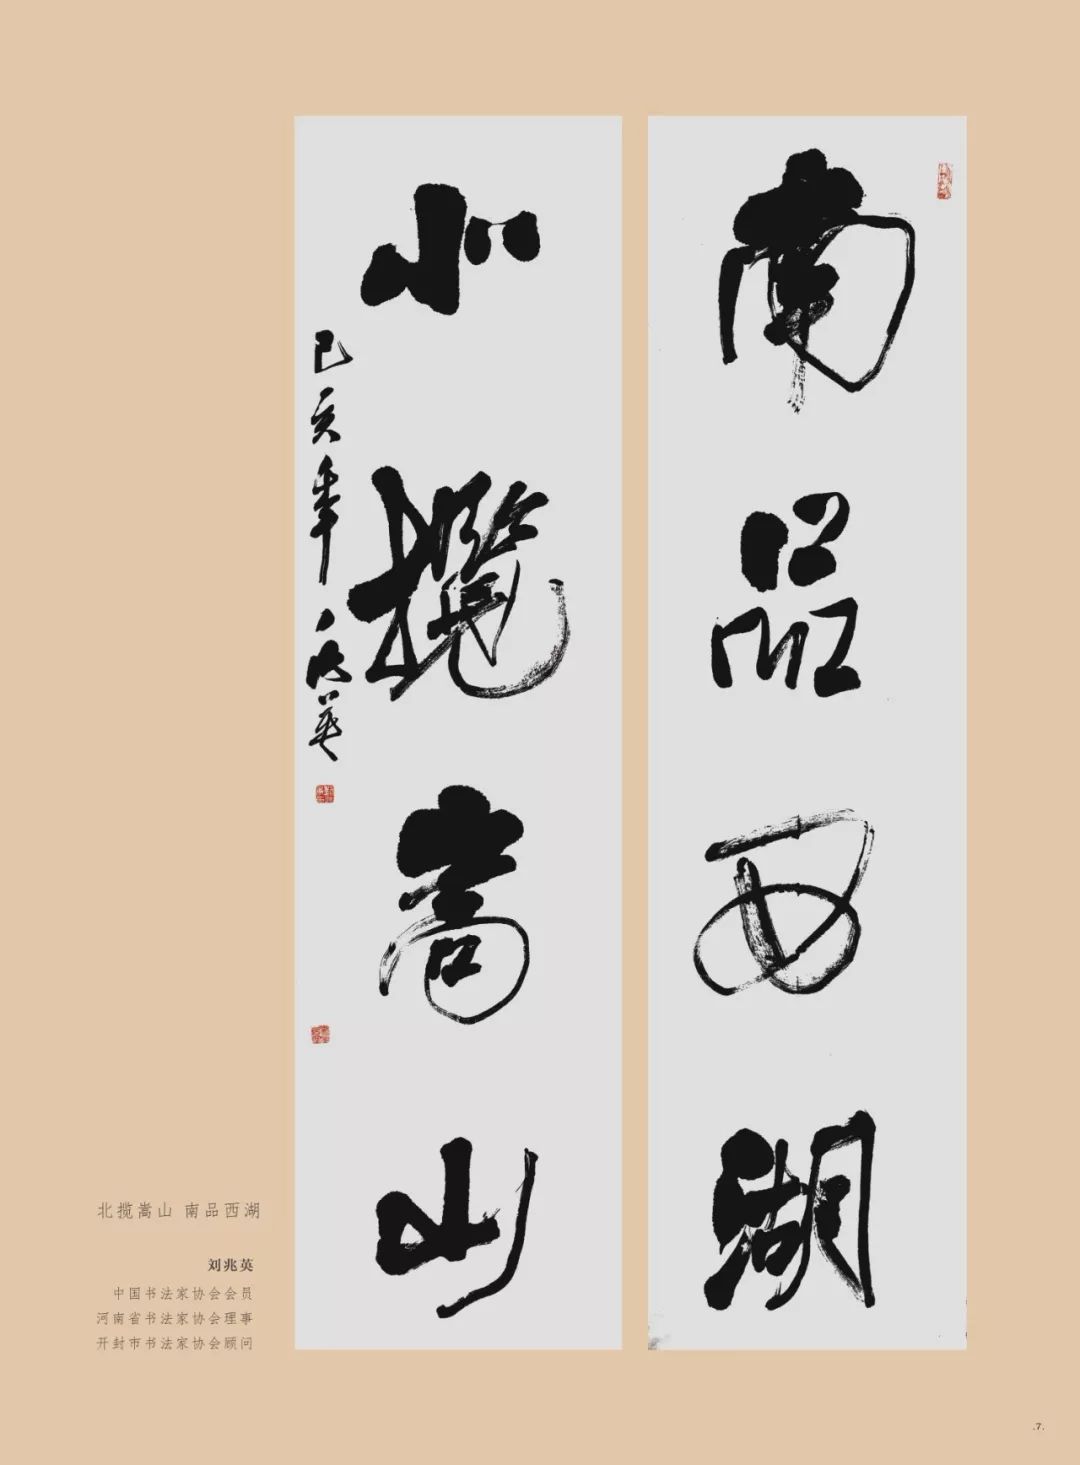 南品西湖
北攬嵩山
己亥年 兆英
北揽嵩山 南品西湖
刘兆英
中国书法家协会会员
河南省书法家协会理事
开封市书法家协会顾问
.7.